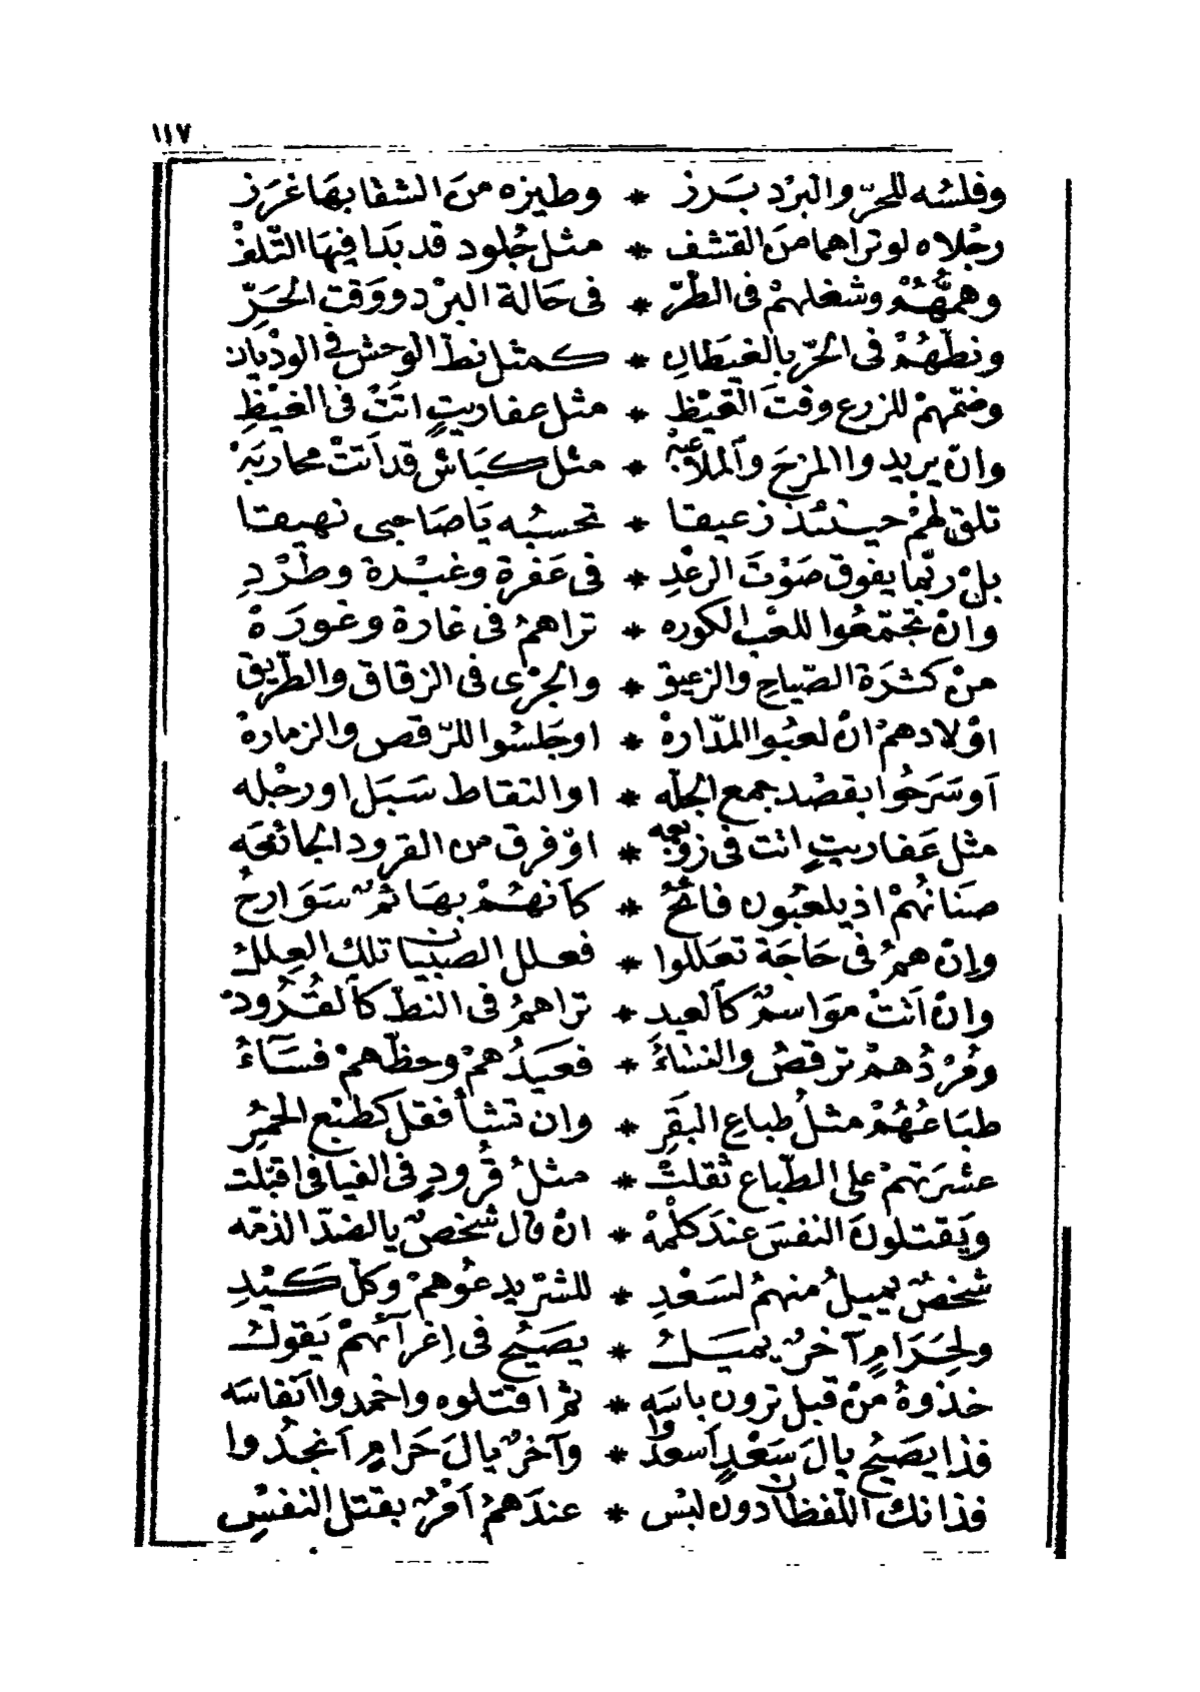 ١١٧
وفلسُه للحرّ والبرْد بَرز * وطيزه منَ الشقا بهَا غرَز
رجْلاه لو تراهما منَ القشف * مثل جُلود قد بَدا فيهَا التّلفْ
وهمّهُمْ وشغلهمْ فى الطّرّ * فى حَالة البرْد ووَقت الحَرِّ
ونطّهُمْ فى الحَرّ بالغيَطانِ * كمثل نطّ الوحش فى الودْيان
وضمّهمْ للزرع وقتَ القَيْظِ * مثل عفاريتٍ اتَتْ فى الغيْظِ
وانْ يريدوا المزحَ وَالملاَعبَهْ * مثل كبَاش قد اَتتْ محاربَهْ
تلق لهمْ حينئذ زعيقا * تحسبُه يَا صَاحبى نهيقا
بلْ ربّما يفوق صَوْتَ الرعْدِ * فى عَفرةٍ وغبْرة وطَرْدِ
وانْ تجمّعُوا للعْب الكوره * تراهمْ فى غارة وغورَهْ
منْ كثرَة الصّياحِ والزعيق * والجرْى فى الزقاق والطّريق
اوْلادهمْ انْ لعبُوا المدّارهْ * اوجَلسُوا للرّقص والزمارهْ
اَوسَرَحُوا بقصْد جمع الجلّه * او التقاط سَبَل اورجْله
مثل عَفاريتٍ اتت فى زوْبعه * اوْ فرق من القرود الجائعَه
صنَانهُمْ اذ يلعبُون فائحُ * كأنهُمْ بهَائمٌ سَوَارحُ
وإنْ همُ فى حَاجَة تعَللوا * فعلل الصبْيان تلك العِللُ
وانْ اَتتْ مَوَاسمٌ كاَلعيدِ * تراهمُ فى النطّ كاَلقُرُودْ
ومُرْدُهمْ ترقصُ والنسَاءُ * فعَيَدُهمْ وحظّهمْ فسَآءُ
طبَاعُهُمْ مثلُ طباعِ البَقَرِ * وان تشأ فقل كطبْع الحمُرِ
عشرَتهمْ على الطّباع ثقلتْ * مثلُ قُرودٍ فى الفيافى اقبَلت
وَيَقتلونَ النفسَ عندَ كلْمهْ * انْ قال شخصٌ يالضدّ الذمّه
شخصٌ يميلُ منهمُ لسَعْدِ * للشرّ يدعُوهمْ وكلّ كَيْدِ
ولِحَرَامٍ آخرٌ يميَلُ * يصَيُح فى إغرآئهمْ يَقولُ
خذوهُ منْ قبل ترون باسَه * ثم اقتلوه واخمدوا انفاسَه
فذا يصَيُح يالَ سَعْدٍ اَسعدُوا * وآخرٌ يالَ حَرامٍ اَنجدُوا
فذانك اللّفظان دون لبْس * عندَهمُ اَمْرٌ بقتل النفسِ